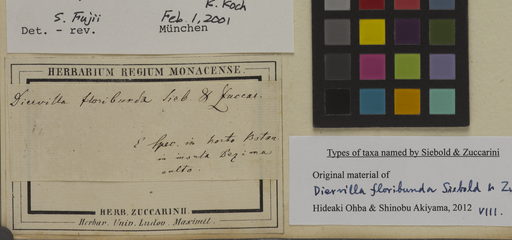 K. Koch
S. Fujii Feb. 1, 2001
Det. - rev. München
HERBARIUM REGIUM MONACENSE.
Diervilla floribunda Sieb. & Zuccar.
E spec. in horto Botan
in monte
culto.
HERB. ZUCCARINII.
Herbar. Univ. Ludov. Maximil.
Types of taxa named by Siebold & Zuccarini
Original material of
Diervilla floribunda Siebold & Zu
Hideaki Ohba & Shinobu Akiyama, 2012 VIII.